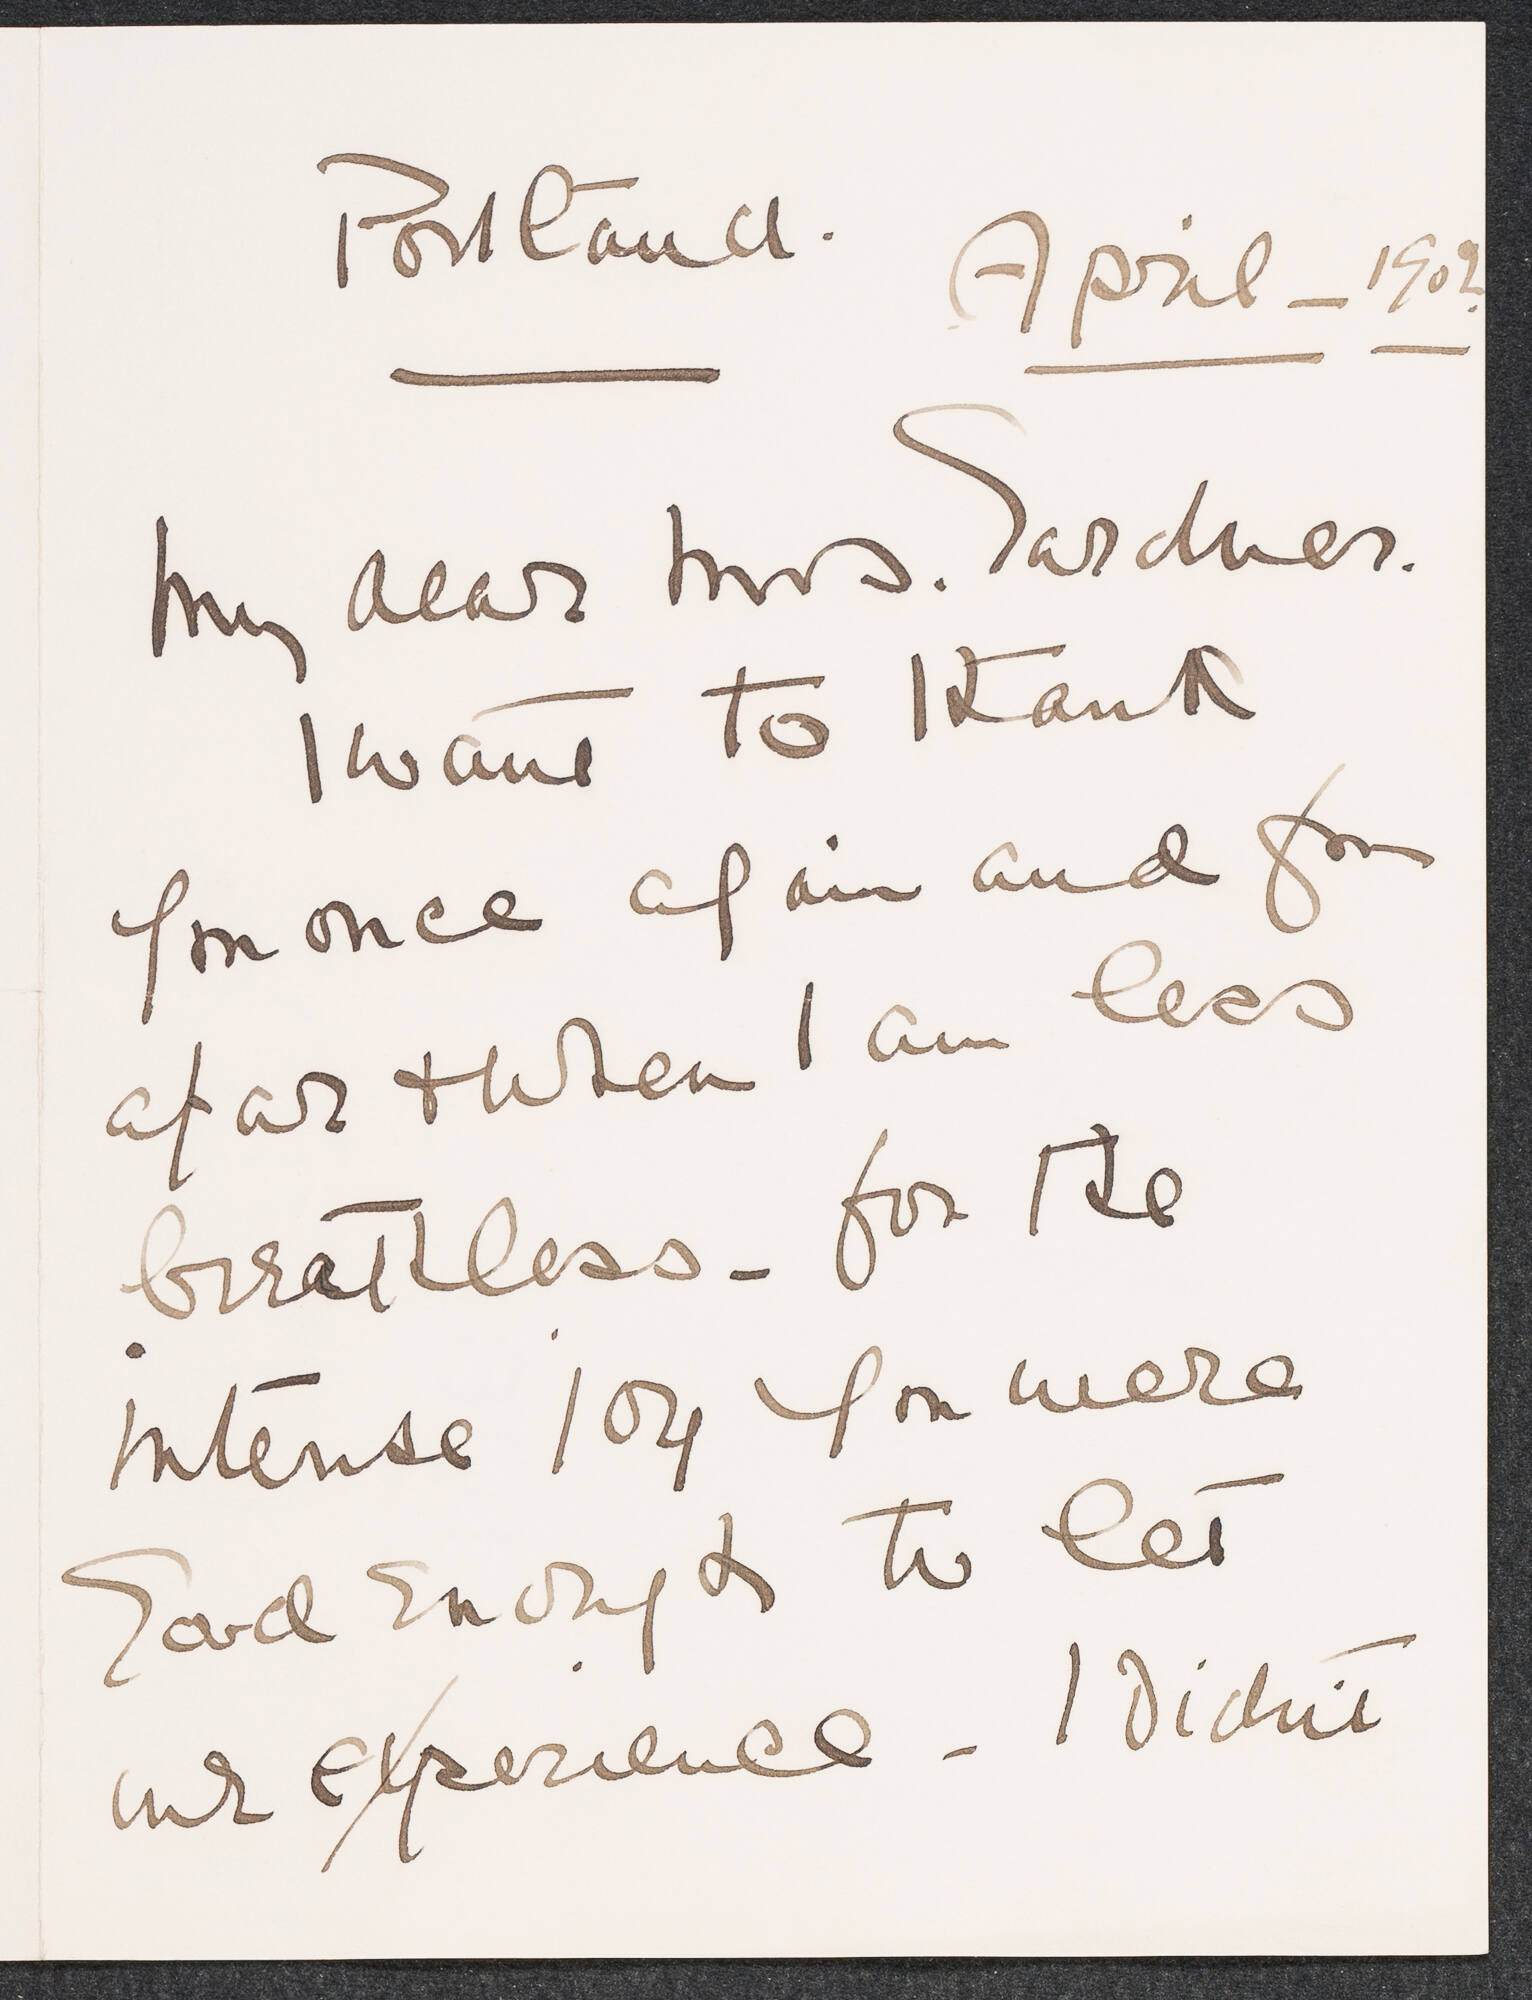 Portland.
April - 1902.
My dear Mrs. Gardner.
I want to thank
you once again and from
afar & when I am less
breathless - for the
intense joy you were
Good Enough to let
me experience - I Didn't